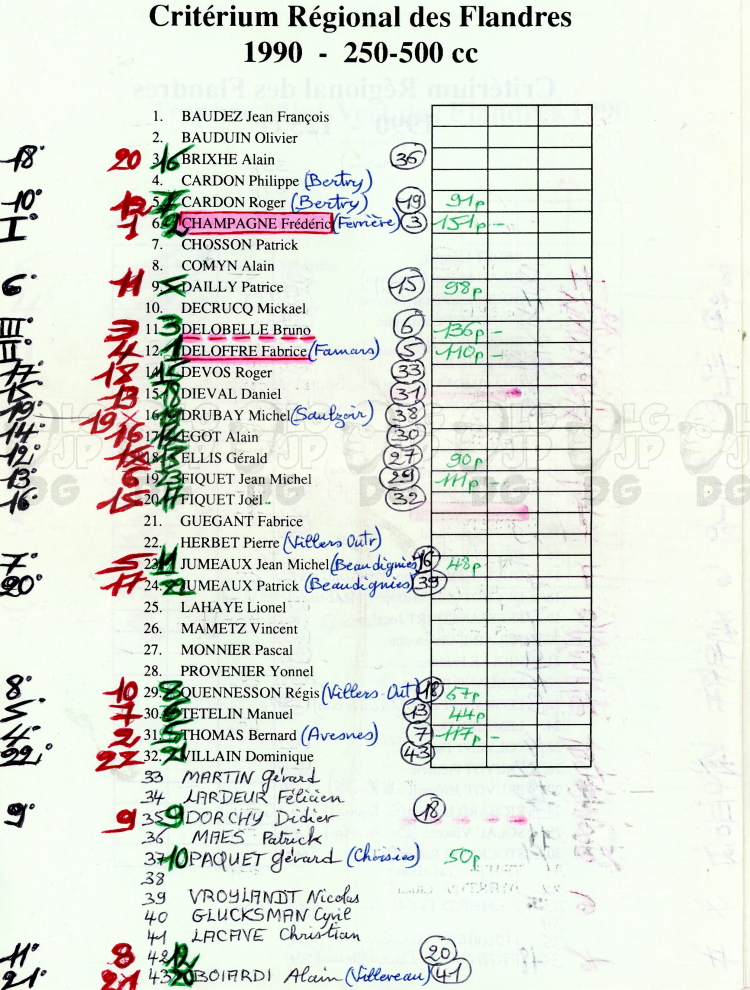 Critérium Régional des Flandres
1990 - 250-500 cc
1. BAUDEZ Jean François
2. BAUDUIN Olivier
18° 20 3. 16 BRIXHE Alain 36
4. CARDON Philippe (Bertry)
10° 5. CARDON Roger (Bertry) 19 91p
I° 1 6. 2 CHAMPAGNE Frédéric (Ferrière) 3 151p -
7. CHOSSON Patrick
8. COMYN Alain
6° 11 9. DAILLY Patrice 15 98p
10. DECRUCQ Mickael
III° 3 11. 3 DELOBELLE Bruno 6 136p -
II° 4 12. 1 DELOFFRE Fabrice (Famars) 5 110p -
17° 18 14. DEVOS Roger 33
15° 13 15. DIEVAL Daniel 31
19° 19 16. DRUBAY Michel (Saulzoir) 38
14° 16 17. EGOT Alain 30
12° 18. ELLIS Gérald 27 90p
13° 6 19. 23 FIQUET Jean Michel 29 111p -
16° 15 20. 17 FIQUET Joël 32
21. GUEGANT Fabrice
22. HERBET Pierre (Villers Outr)
7° 5 23. 11 JUMEAUX Jean Michel (Beaudignies) 16 48p
20° 17 24. 22 JUMEAUX Patrick (Beaudignies) 39
25. LAHAYE Lionel
26. MAMETZ Vincent
27. MONNIER Pascal
28. PROVENIER Yonnel
8° 10 29. QUENNESSON Régis (Villers-Out) 18 67p
5° 7 30. 6 TETELIN Manuel 13 44p
4° 2 31. 5 THOMAS Bernard (Avesnes) 7 117p -
22° 22 32. 21 VILLAIN Dominique 43
33 MARTIN Gérard
34 LARDEUR Félicien
9° 9 35 9 DORCHY Didier 18
36 MAES Patrick
37 10 PAQUET Gérard (Choisies) 50p
38
39 VROYLANDT Nicolas
40 GLUCKSMAN Cyril
41 LACAVE Christian
11° 8 42 12 20
21° 21 43 20 BOIARDI Alain (Villereau) 41